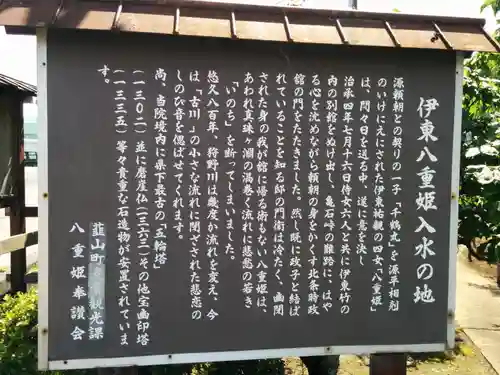 伊東八重姫入水の地
源頼朝との契りの一子「千鶴丸」を源平相剋
のいけにえにされた伊東祐親の四女「八重姫」
は、悶々日を送る中、遂に意を決し
治承四年七月十六日侍女六人と共に伊東竹の
内の別館をぬけ出し、亀石峠の難路に、はや
る心を沈めながら頼朝の身をかくす北條時政
館の門をたたきました。然し既に政子と結ば
れていることを知る邸の門衛は冷たく、幽閉
された身の我が館に帰る術もない八重姫は、
あわれ真珠ヶ淵の渦巻く流れに悲愁の若き
「いのち」を断ってしまいました。
悠久八百年、狩野川は幾度か流れを変え、今
は「古川」の小さな流れに閉ざされた悲恋の
しのび音を偲ばせてくれます。
尚、当院境内に県下最古の「五輪塔」
(一三〇二)並に磨崖仏(一三六三)その他宝画印塔
(一三三五)等々貴重な石造物が安置されていま
す。
韮山町 観光課
八重姫奉讃会